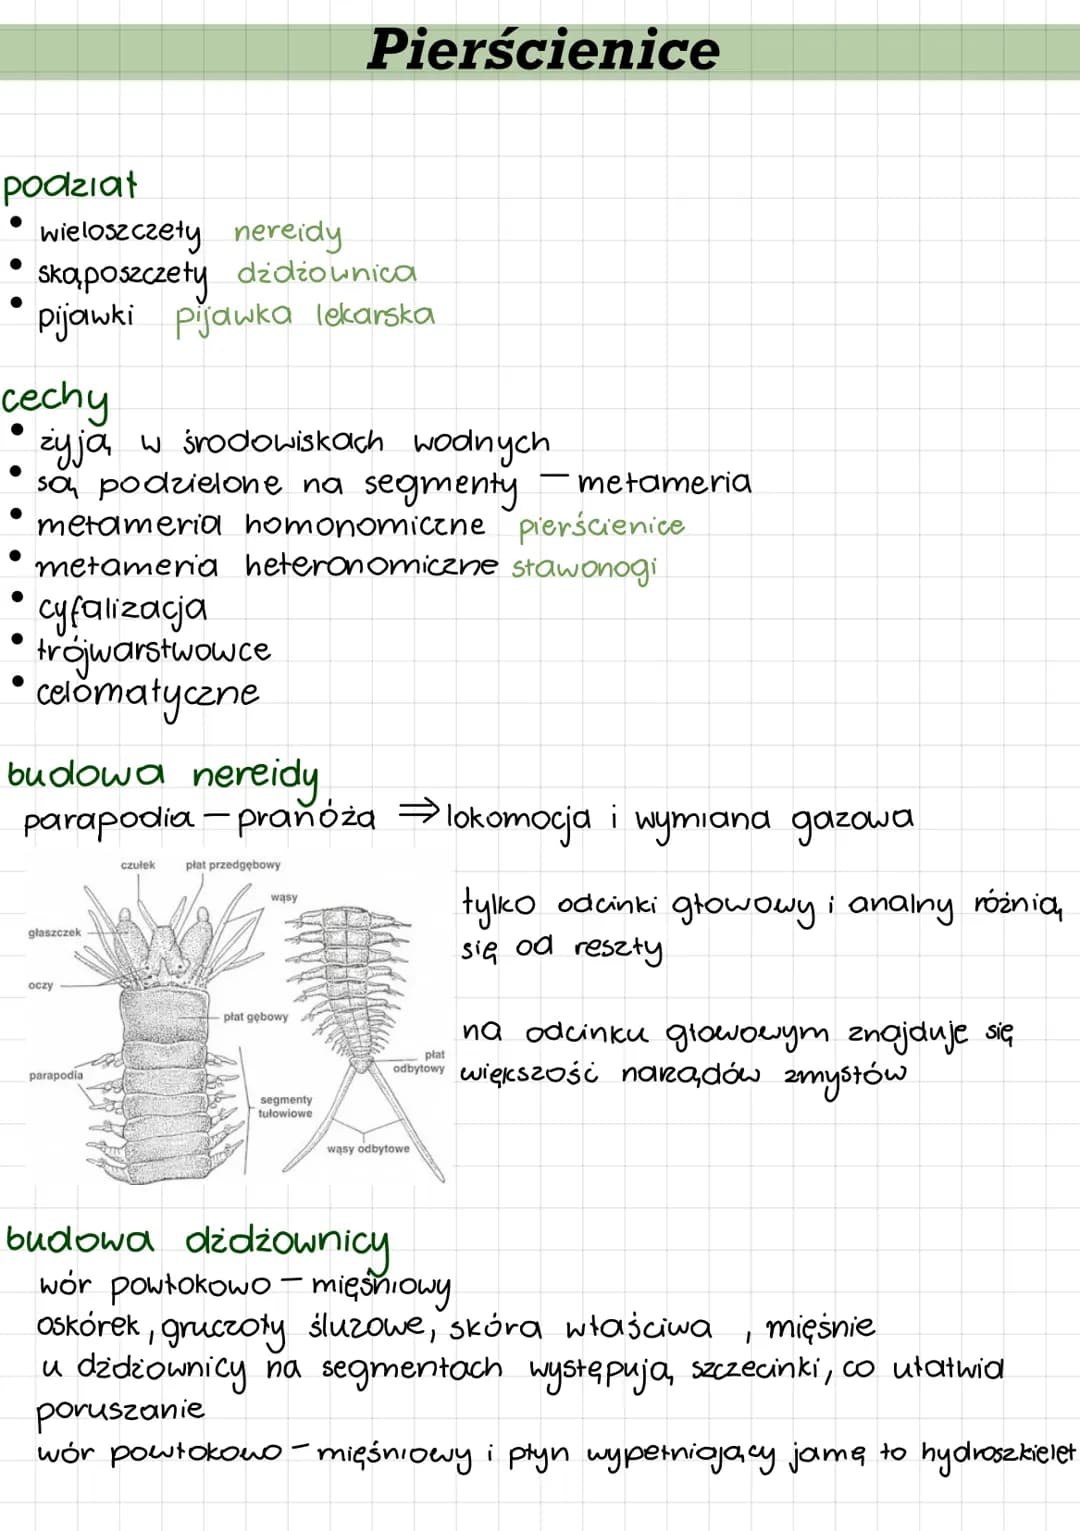 Pierścienice
podział
• wieloszczety nereidy
• skąposzczety dżdżownica
• pijawki pijawka lekarska
cechy
• żyją w środowiskach wodnych
• są podzielone na segmenty – metameria
• metameria homonomiczne pierścienice
• metameria heteronomiczne stawonogi
• cyfalizacja
• trójwarstwowce
• celomatyczne
budowa nereidy
parapodia – pranóża ⇒ lokomocja i wymiana gazowa
czułek płat przedgębowy
wąsy
głaszczek
oczy
płat gębowy
parapodia
segmenty
tułowiowe
płat
odbytowy
wąsy odbytowe
tylko odcinki głowowy i analny różnią
się od reszty
na odcinku głowowym znajduje się
większość narządów zmysłów
budowa dżdżownicy
wór powłokowo – mięśniowy
oskórek, gruczoły śluzowe, skóra właściwa , mięśnie
u dżdżownicy na segmentach występują szczecinki, co ułatwia
poruszanie
wór powłokowo – mięśniowy i płyn wypełniający jamę to hydroszkielet